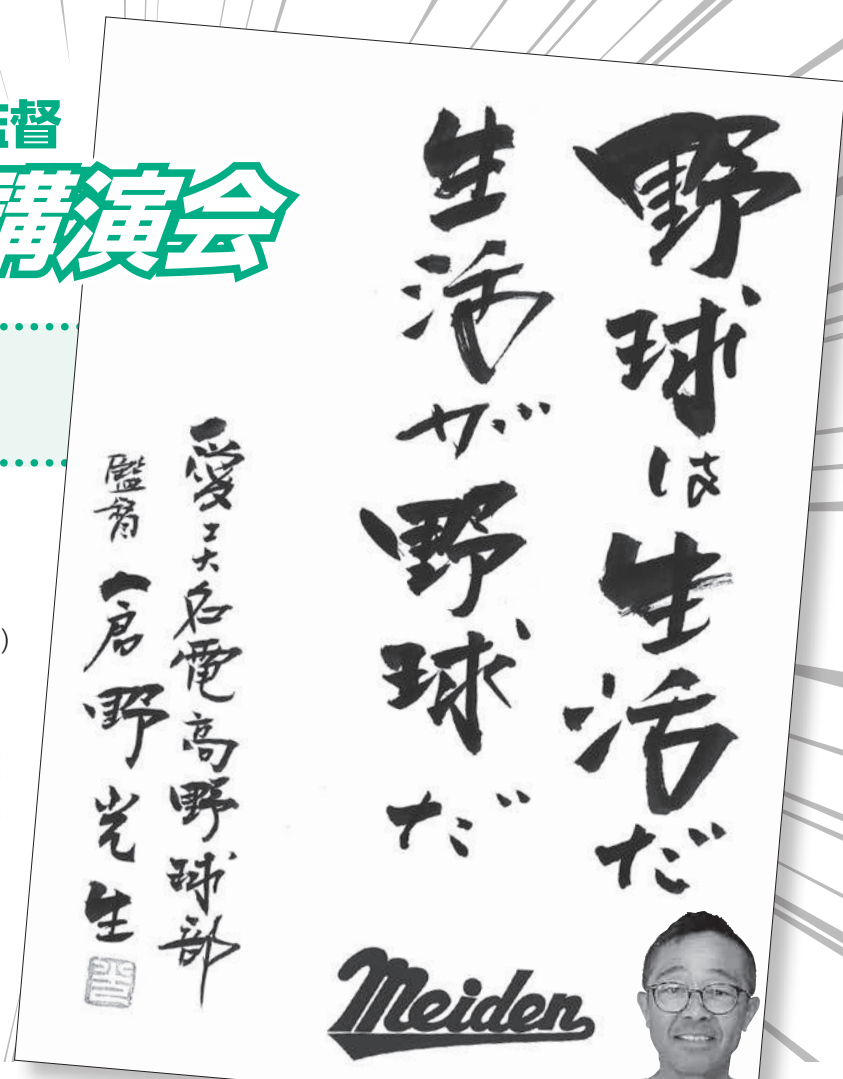 督
講演会
野球は生活だ
生活が野球だ
愛工大名電高野球部
監督 倉野光生
Meiden
)